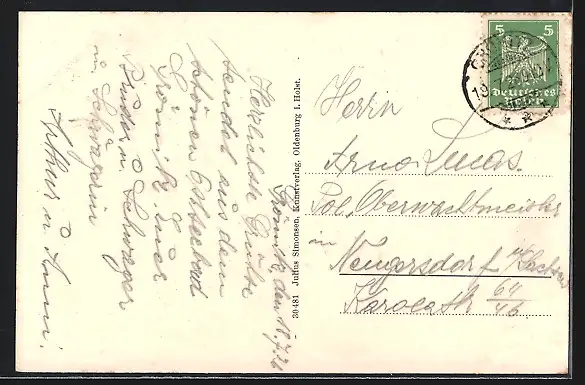 Grömitz, den 18.7.2
Herzlichste Grüße
sendet aus dem
schönen Ostseebad
Grömitz Euer
Bruder u. Schwager
u. Schwägerin
Arthur u. Anni!
30481 Julius Simonsen, Kunstverlag, Oldenburg i. Holst.
5 5
Deutsches
Reich
Herrn
Arno Lucas.
Pol. Oberwachtmeister
in
Neugersdorf i/ Sachsen
Karolastr. 64/46